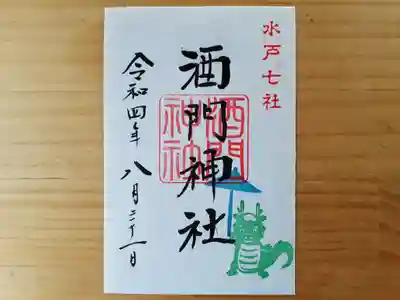 水戸七社
酒門神社
酒門神社
令和四年八月二十一日